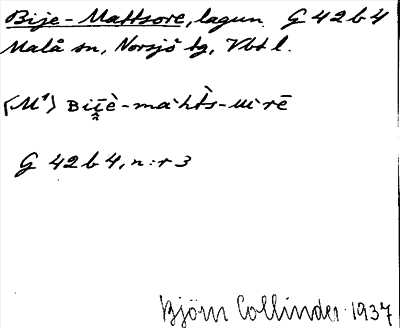 Bije-Mattsore, lagun. G 42 b 4
Malå sn, Norsjö tg, Vbt l.
G 42 b 4, n:r 3
Björn Collinder 1937